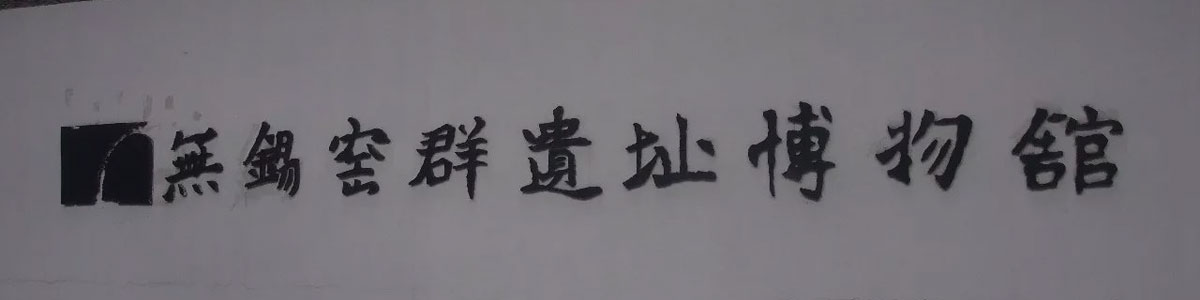 無錫窑群遺址博物舘